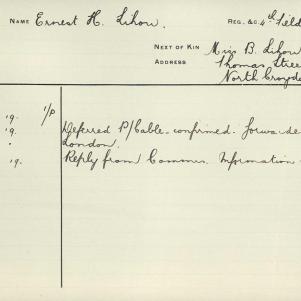 NAME Ernest H. Lihou. REG. &C. 4th Field
NEXT OF KIN Miss B. Lihou
ADDRESS Thomas Stree
North Croydo
19. 1/P
19. Deferred P/Cable confirmed. Forwarde
" London.
19. Reply from Commrs. Information